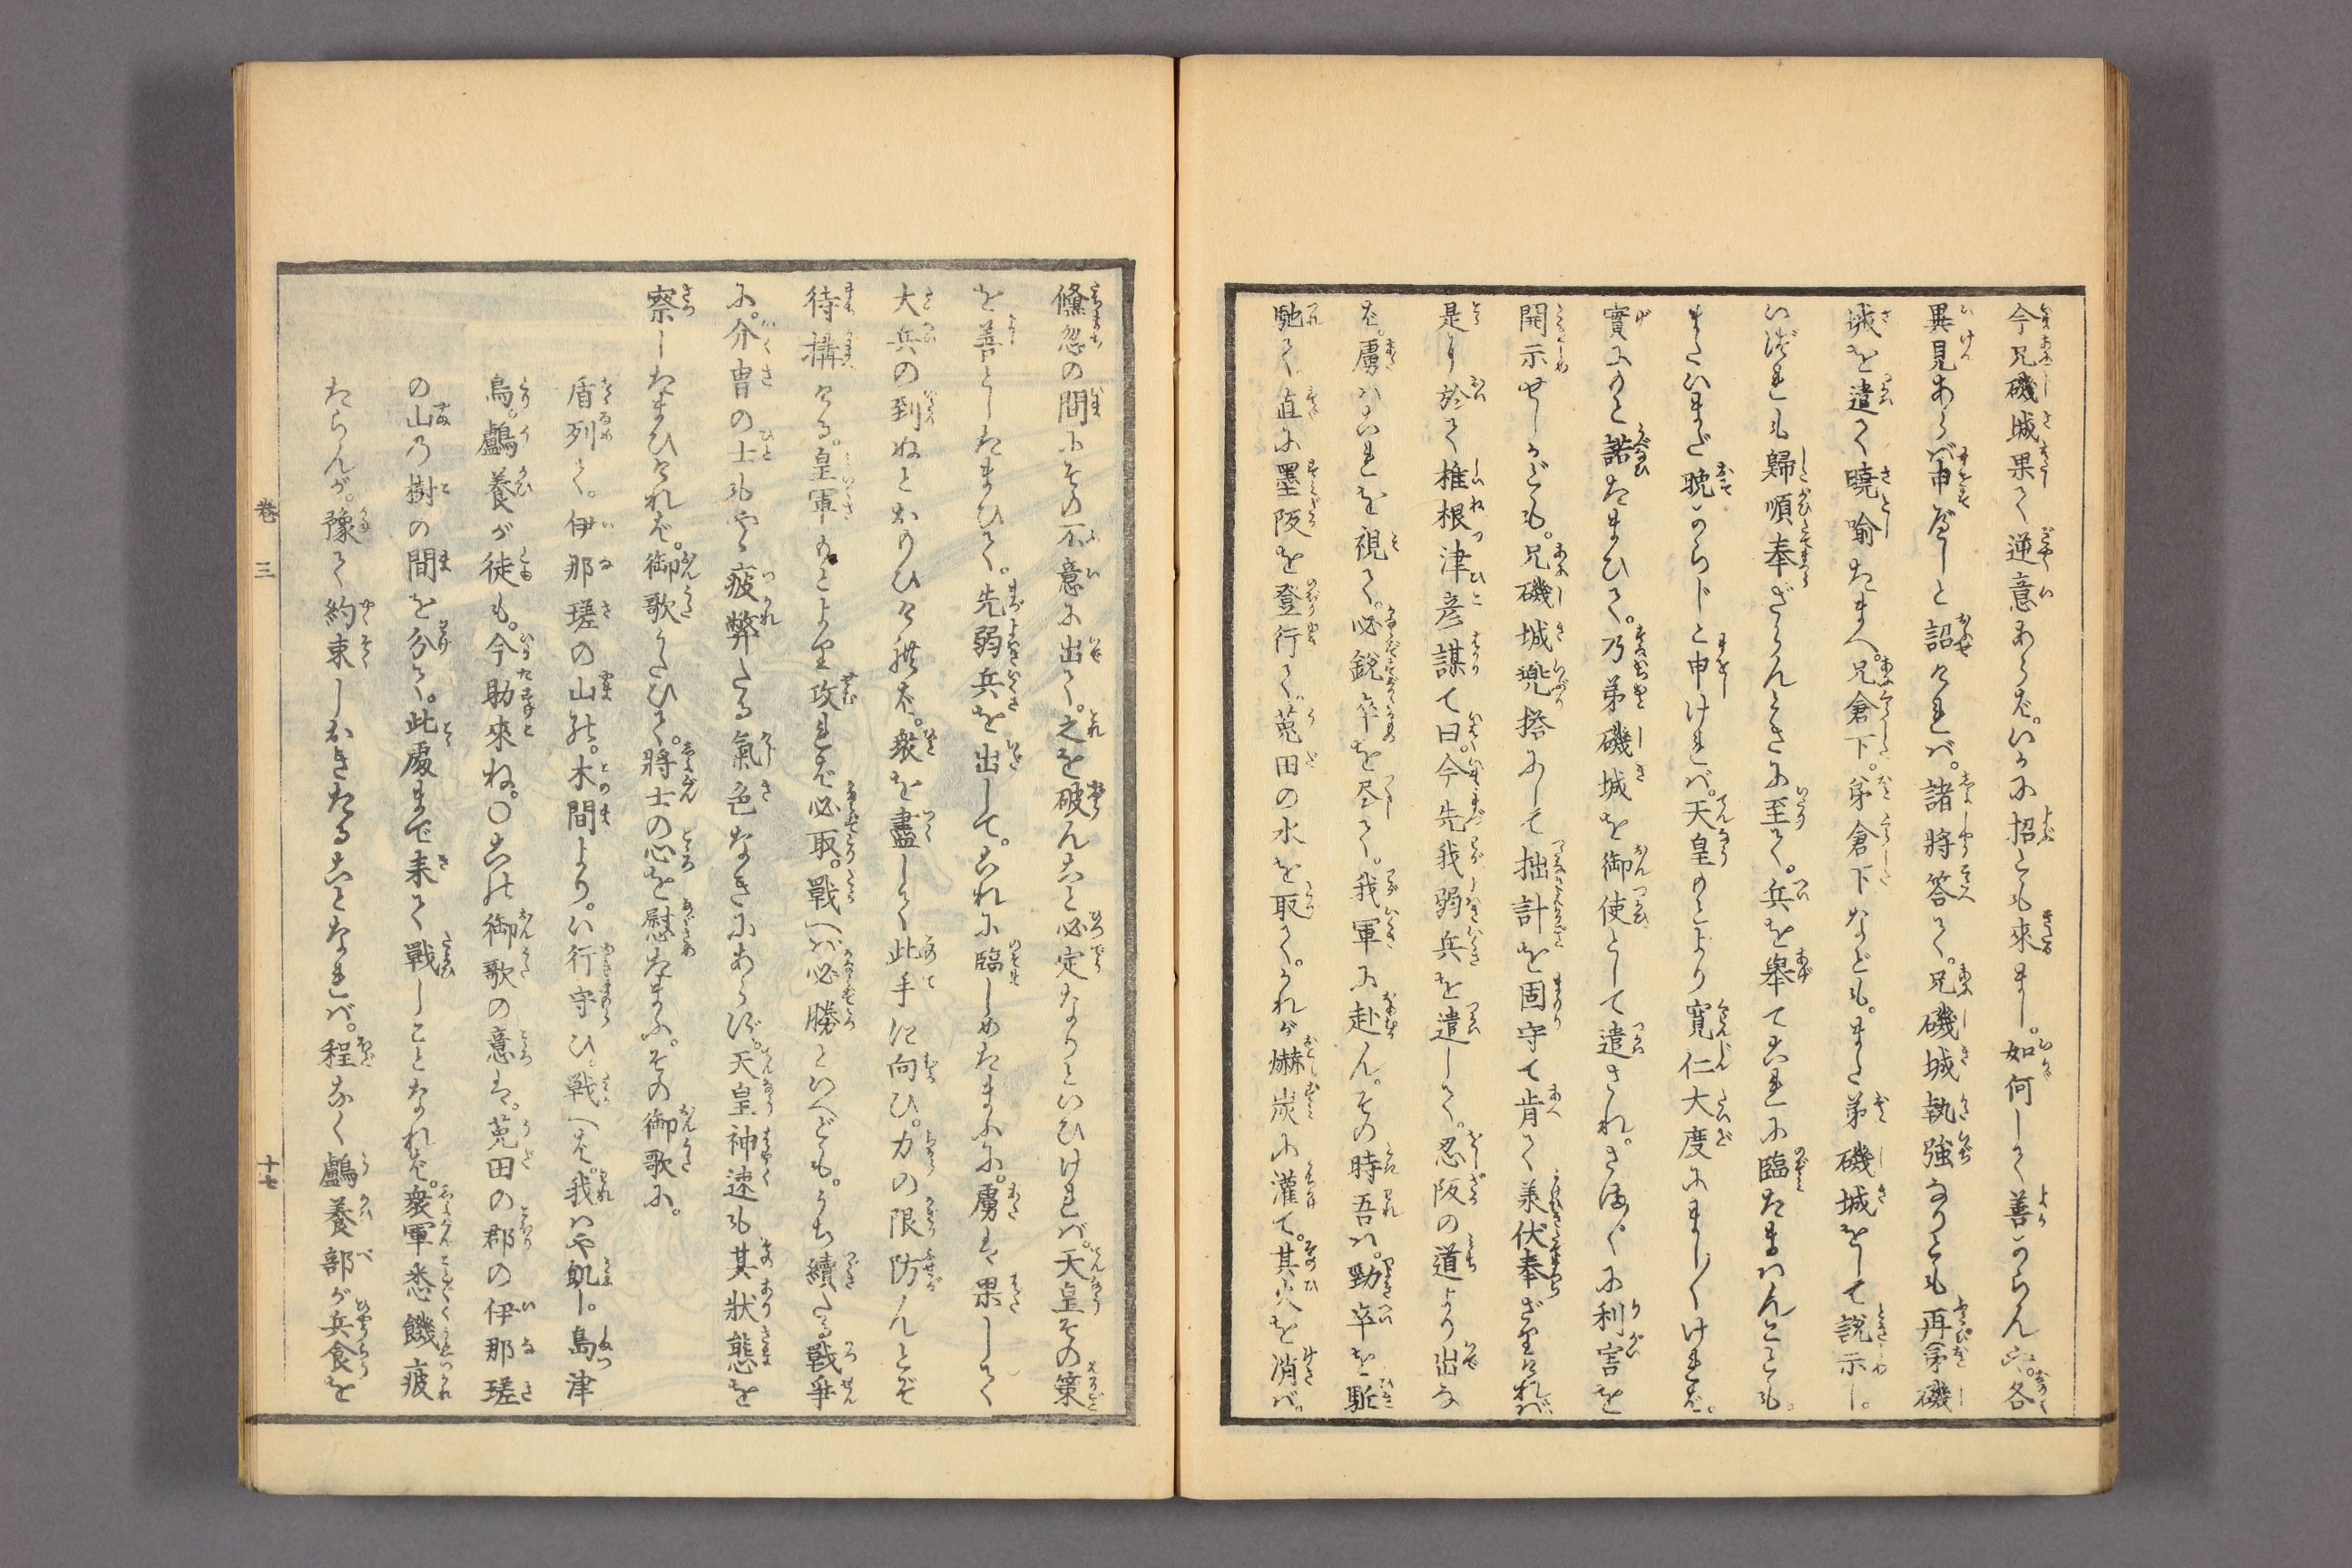 今兄磯城果て逆意あらば。いかに招とも來まし。如何して善からん六。各
異見あらば申べしと詔ければ。諸將答て。兄磯城執強なりとも再弟磯
城を遣て曉喩たまへ。兄倉下。弟倉下なども。また弟磯城をして説示し。
いづれも歸順奉ざらんときに至て。兵を舉てこれに臨たまはんことも。
またいまだ晩からじと申ければ。天皇もとより寛仁大度にましましければ。
實にもと諾たまひて。乃弟磯城を御使として遣され。さまざまに利害を
開示せしかども。兄磯城兜搭にして拙計を固守て肯て羕伏奉ざりければ。
是に於て椎根津彦謀て曰。今先我弱兵を遣して。忍阪の道より出な
ば。虜はこれを視て。必銳卒を尽して。我軍に赴ん。その時吾は。勁卒を駈
馳て。直に墨阪を登行て。菟田の水を取て。かれが爀炭に灌て。其火を消ば。
儵忽の間にその不意に出て。之を破んこと必定なりといひければ。天皇その策
を善としたまひて。先弱兵を出して。これに臨しめたまふに。虜は果して
大兵の到ぬとおもひければ。衆を盡して此手に向ひ。力の限防んとぞ
待搆ける。皇軍もとより攻れば必取。戰へば必勝といへども。うち續たる戰爭
に。介冑の士もやゝ疲弊たる氣色なきにあらず。天皇神速も其狀態を
察したまひければ。御歌うたひて。將士の心を慰たまふ。その御歌に。
盾列て。伊那瑳の山の。木間より。い行守ひ。戰へば。我はや飢し。島津
鳥。鸕養が徒も。今助來ね。〇この御歌の意は。菟田の郡の伊那瑳
の山乃樹の間を分て。此處まで来て戰しことなれば。衆軍悉饑疲
たらんが。豫て約束しおきたることなれば。程なく鸕養部が兵食を
卷三
十七